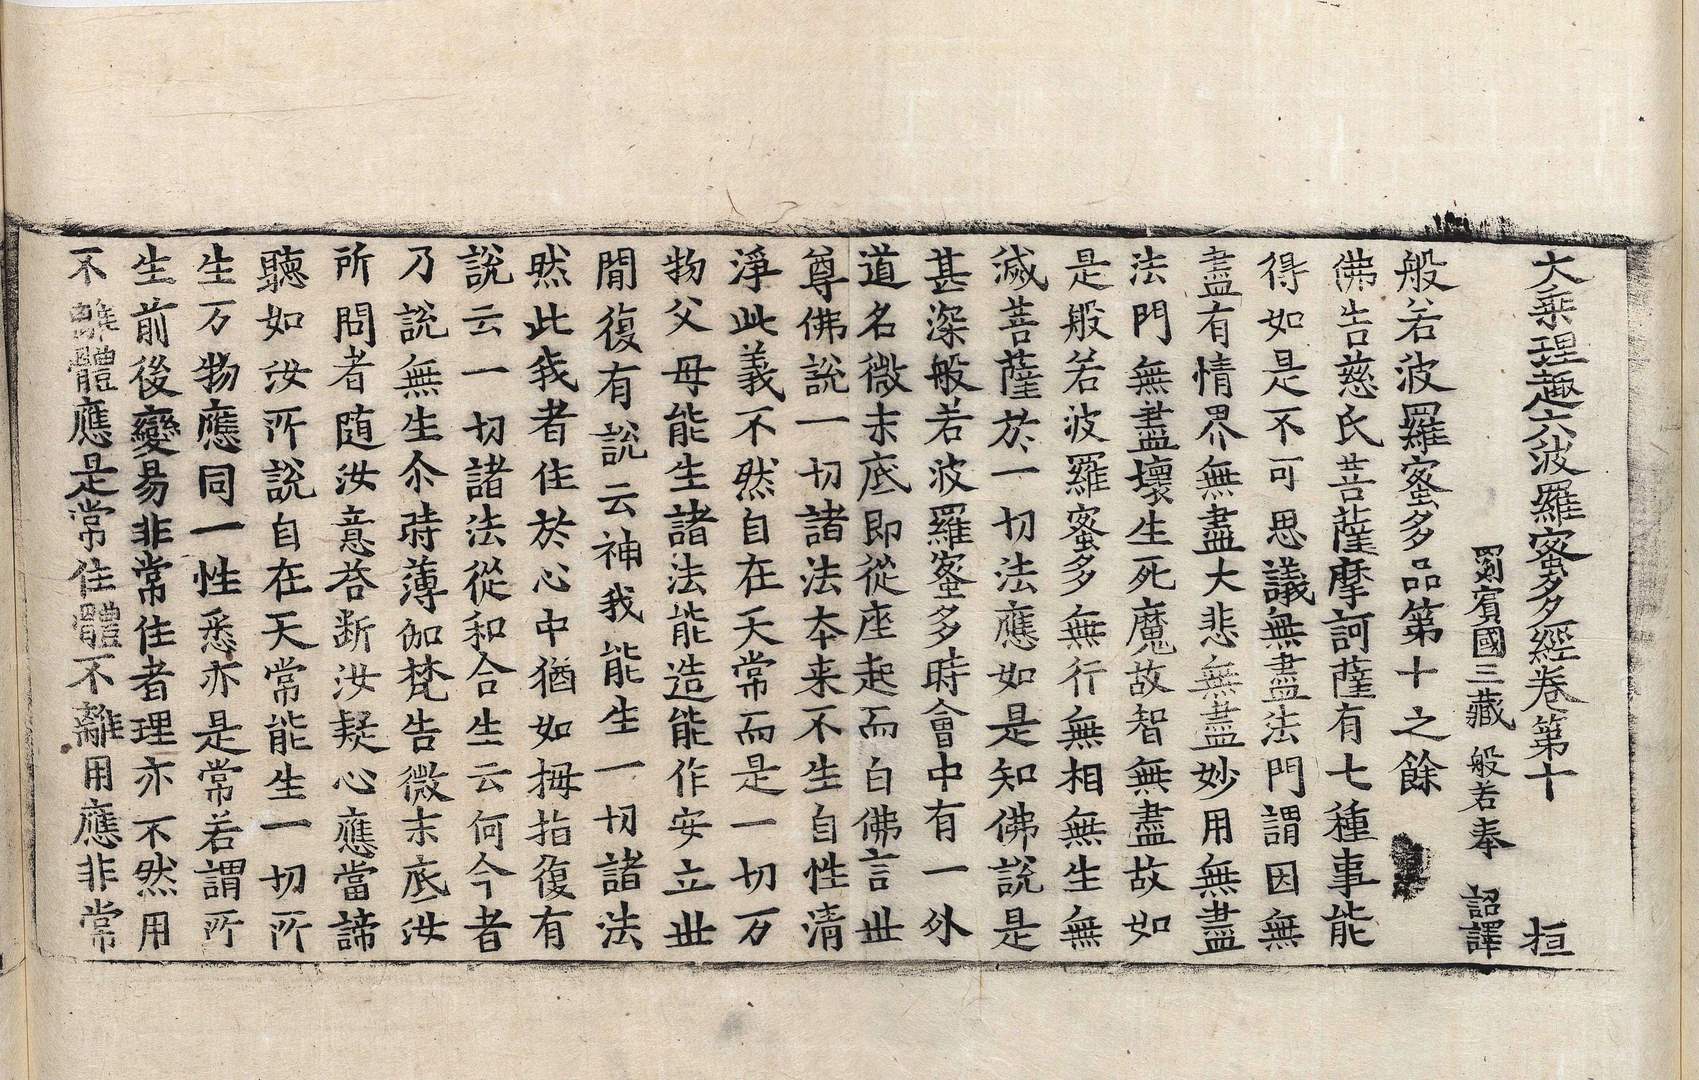 大乘理趣六波羅蜜多經卷第十 桓
罽賓國三藏 般若奉 詔譯
般若波羅蜜多品第十之餘
佛告慈氏菩薩摩訶薩有七種事能
得如是不可思議無盡法門謂因無
盡有情界無盡大悲無盡妙用無盡
法門無盡壞生死魔故智無盡故如
是般若波羅蜜多無行無相無生無
滅菩薩於一切法應如是知佛說是
甚深般若波羅蜜多時會中有一外
道名微末底即從座起而白佛言世
尊佛說一切諸法本来不生自性清
淨此義不然自在天常而是一切万
物父母能生諸法能造能作安立世
間復有說云神我能生一切諸法
然此我者住於心中猶如拇指復有
說云一切諸法從和合生云何今者
乃說無生尒時薄伽梵告微末底汝
所問者随汝意荅断汝疑心應當諦
聽如汝所說自在天常能生一切所
生万物應同一性悉亦是常若謂所
生前後變易非常住者理亦不然用
不離體應是常住體不離用應非常